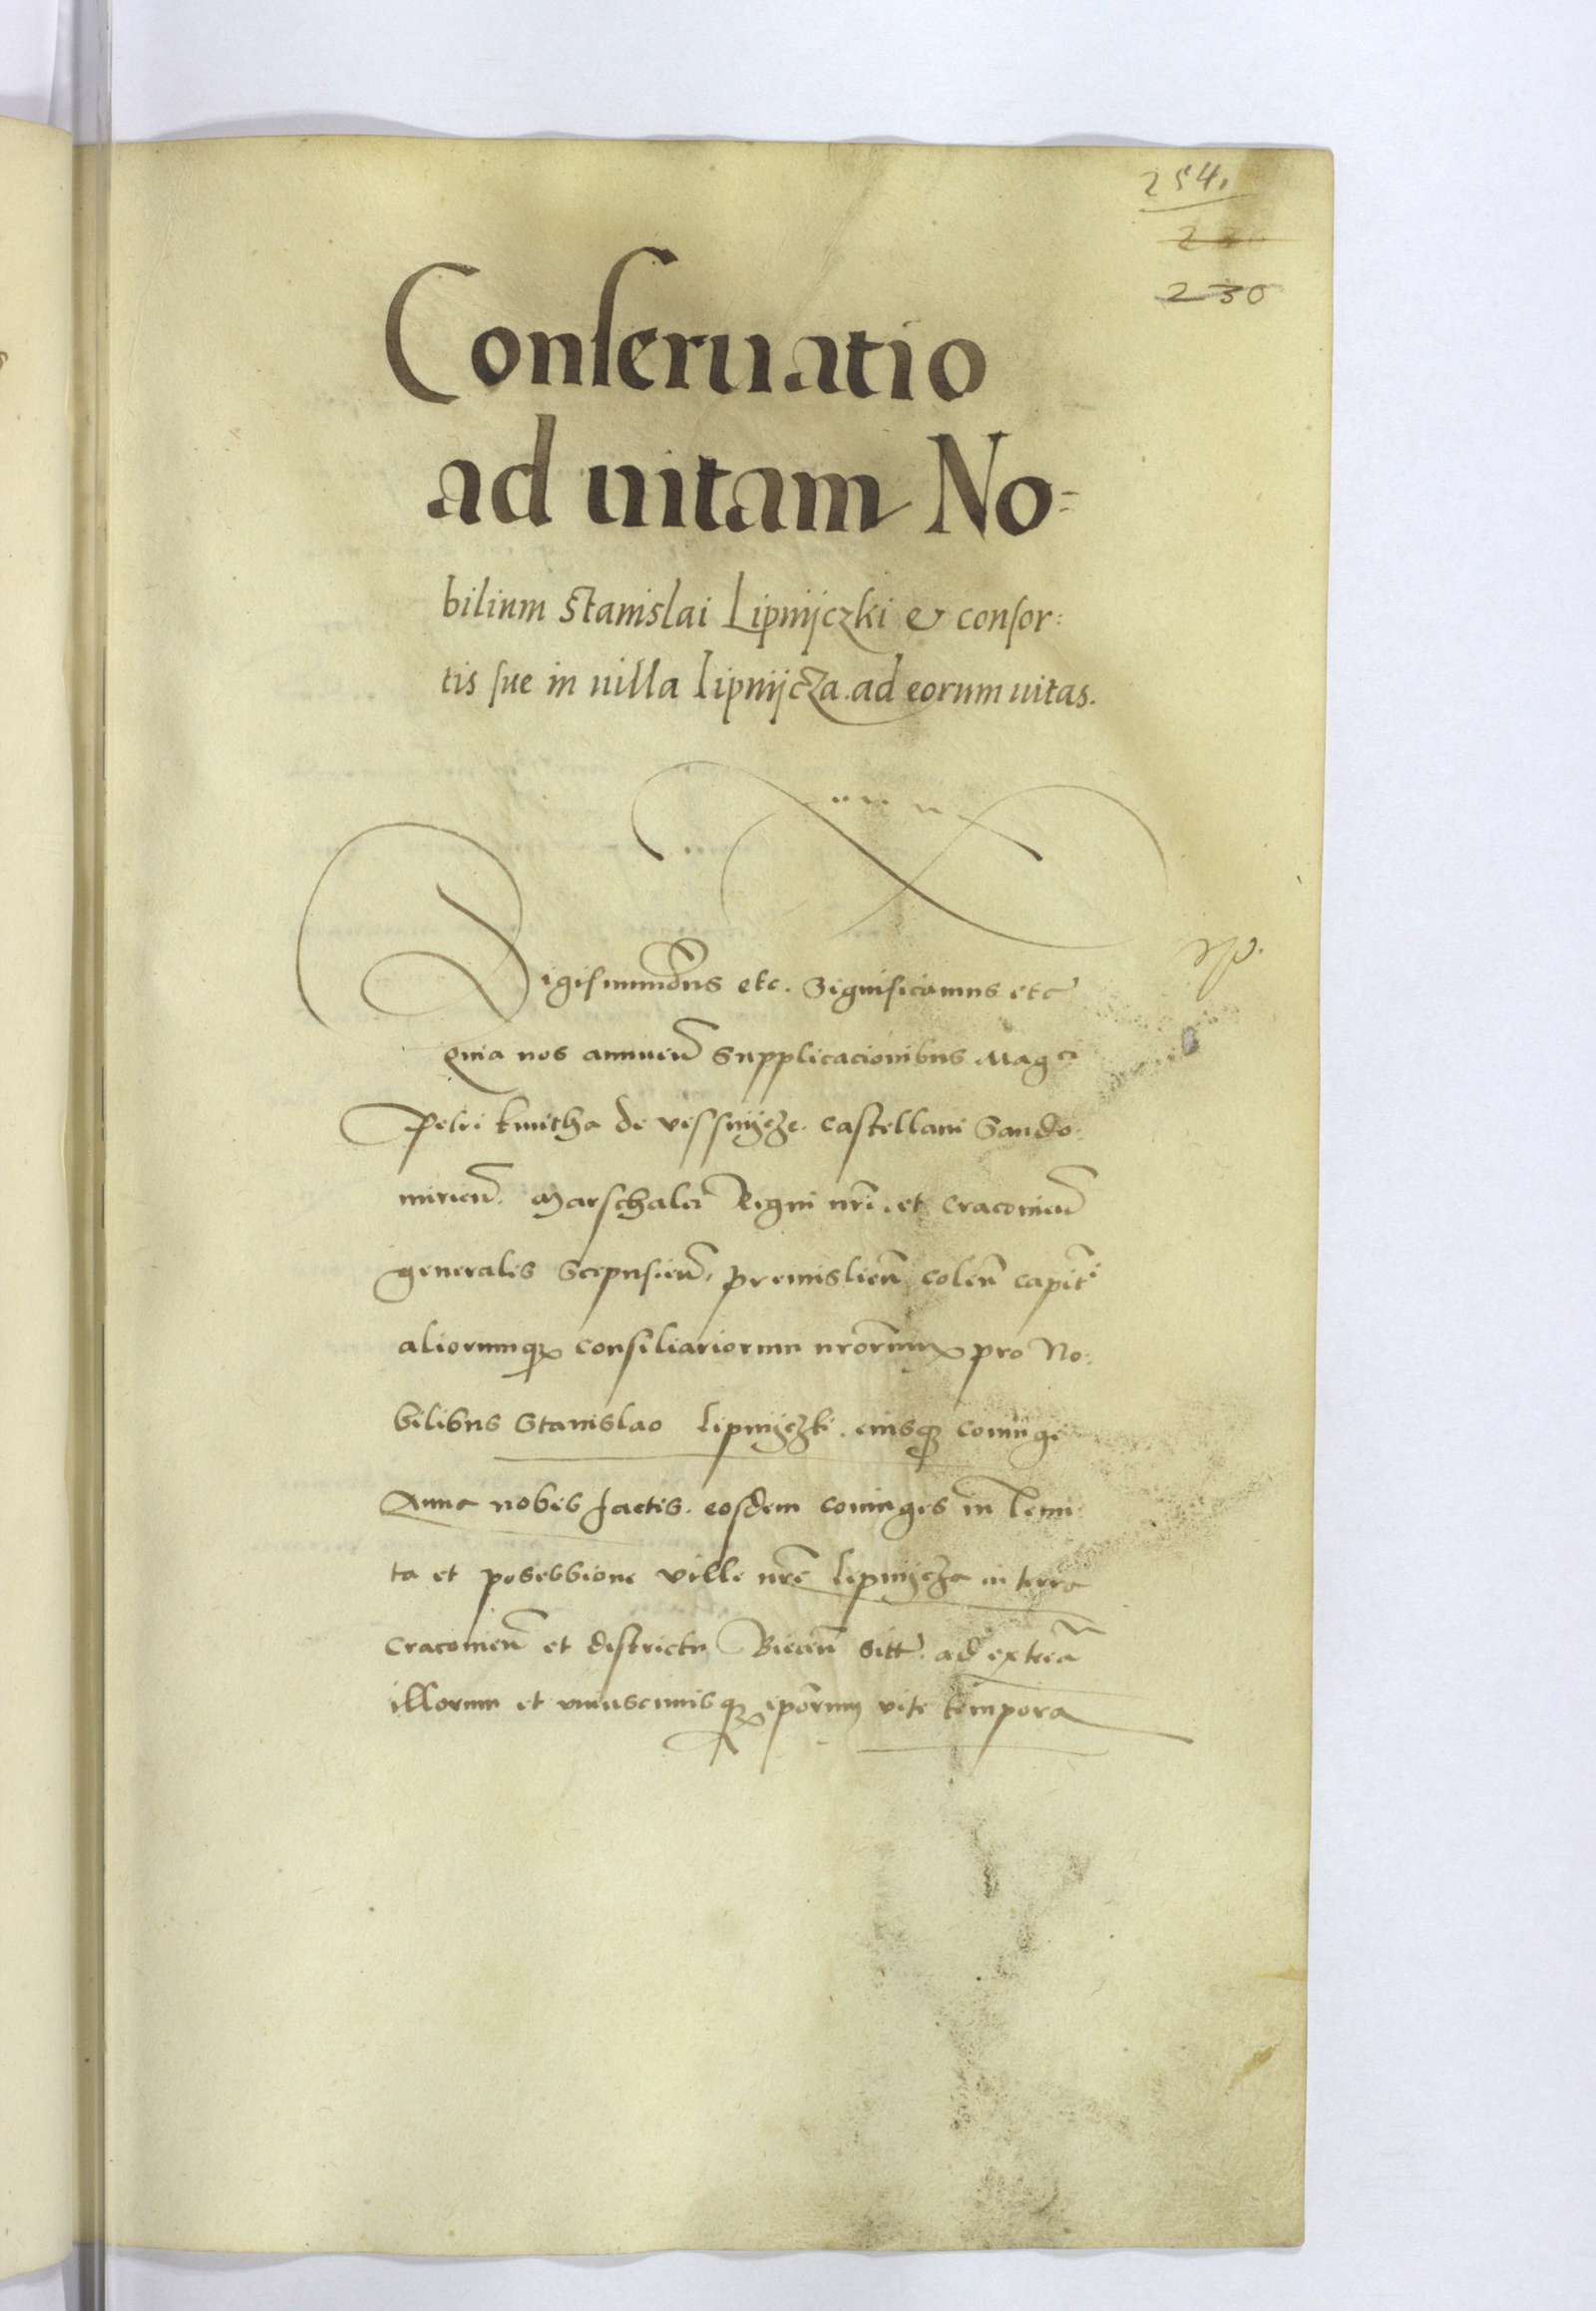 254.
230
Conseruatio
ad uitam No=
bilium Stanislai Lipnijczki & consor:
tis sue in uilla Lipnijcza. ad eorum uitas.
Sigismundus etc. Significamus etc
Quia nos annuen̄ Supplicacionibus Magci
Petri Kmitha de vissnijcze. Castellani Sando:
mirien̄. Marschalci Regni nr̄i. et Cracouien̄
generalis Scepusien̄. Premislien̄ Colen̄ capit̄i
aliorumq3 consiliariorum nrōrum pro No:
bilibus Stanislao Lipnijczki. eiusq3 coniuge
Anna nobis factis. eosdem coniuges in Tenu
ta et possessione ville nr̄e Lipnijcza in terra
Cracouien̄ et districtu Biecen̄ sitt. ad extrēa
illorum et vniuscuiusq3 ipōrum vite tempora